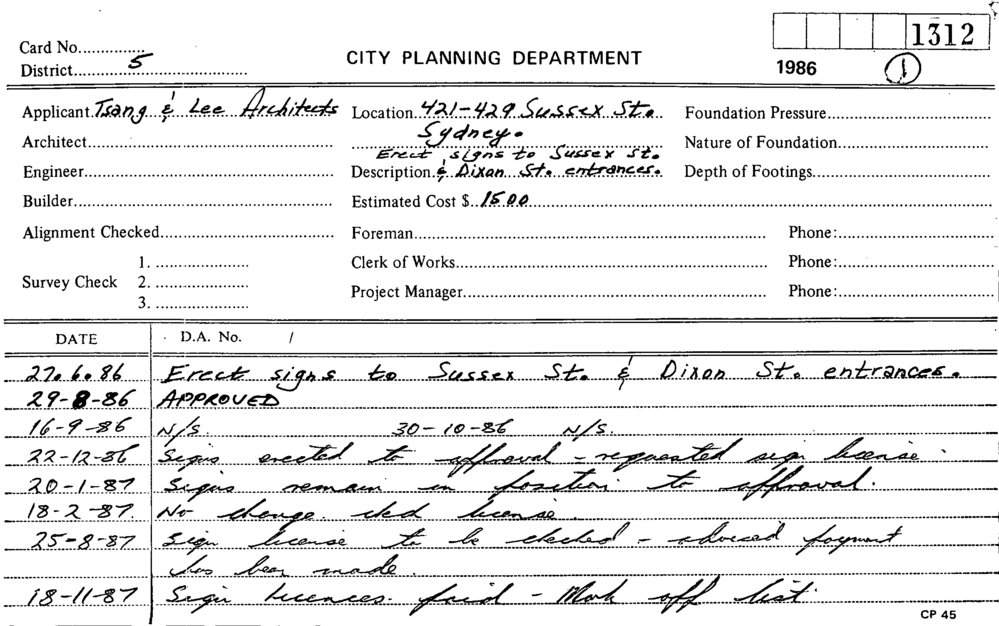 1312
Card No...............
District................5.......................
CITY PLANNING DEPARTMENT
1986 1
Applicant Tsang & Lee Architects Location 421-429 Sussex St. Foundation Pressure
Architect Sydney. Nature of Foundation
Erect signs to Sussex St.
Engineer Description & Dixon St. entrances. Depth of Footings
Builder Estimated Cost $ 1500
Alignment Checked Foreman Phone:
1.
Clerk of Works Phone:
Survey Check 2.
Project Manager Phone:
3.
DATE D.A. No. /
27.6.86 Erect signs to Sussex St. & Dixon St. entrances.
29-8-86 APPROVED
16-9-86 N/S 30-10-86 N/S.
22-12-86 Signs erected to approval - requested sign license.
20-1-87 Signs remain in position to approval.
18-2-87. No change. license.
25-8-87 Sign license to be checked - adviced payment
has been made.
18-11-87 Sign licences paid - Mark off list.
CP 45